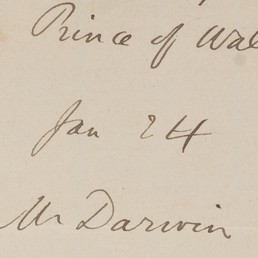 Prince of Wal
Jan 24
Mr Darwin